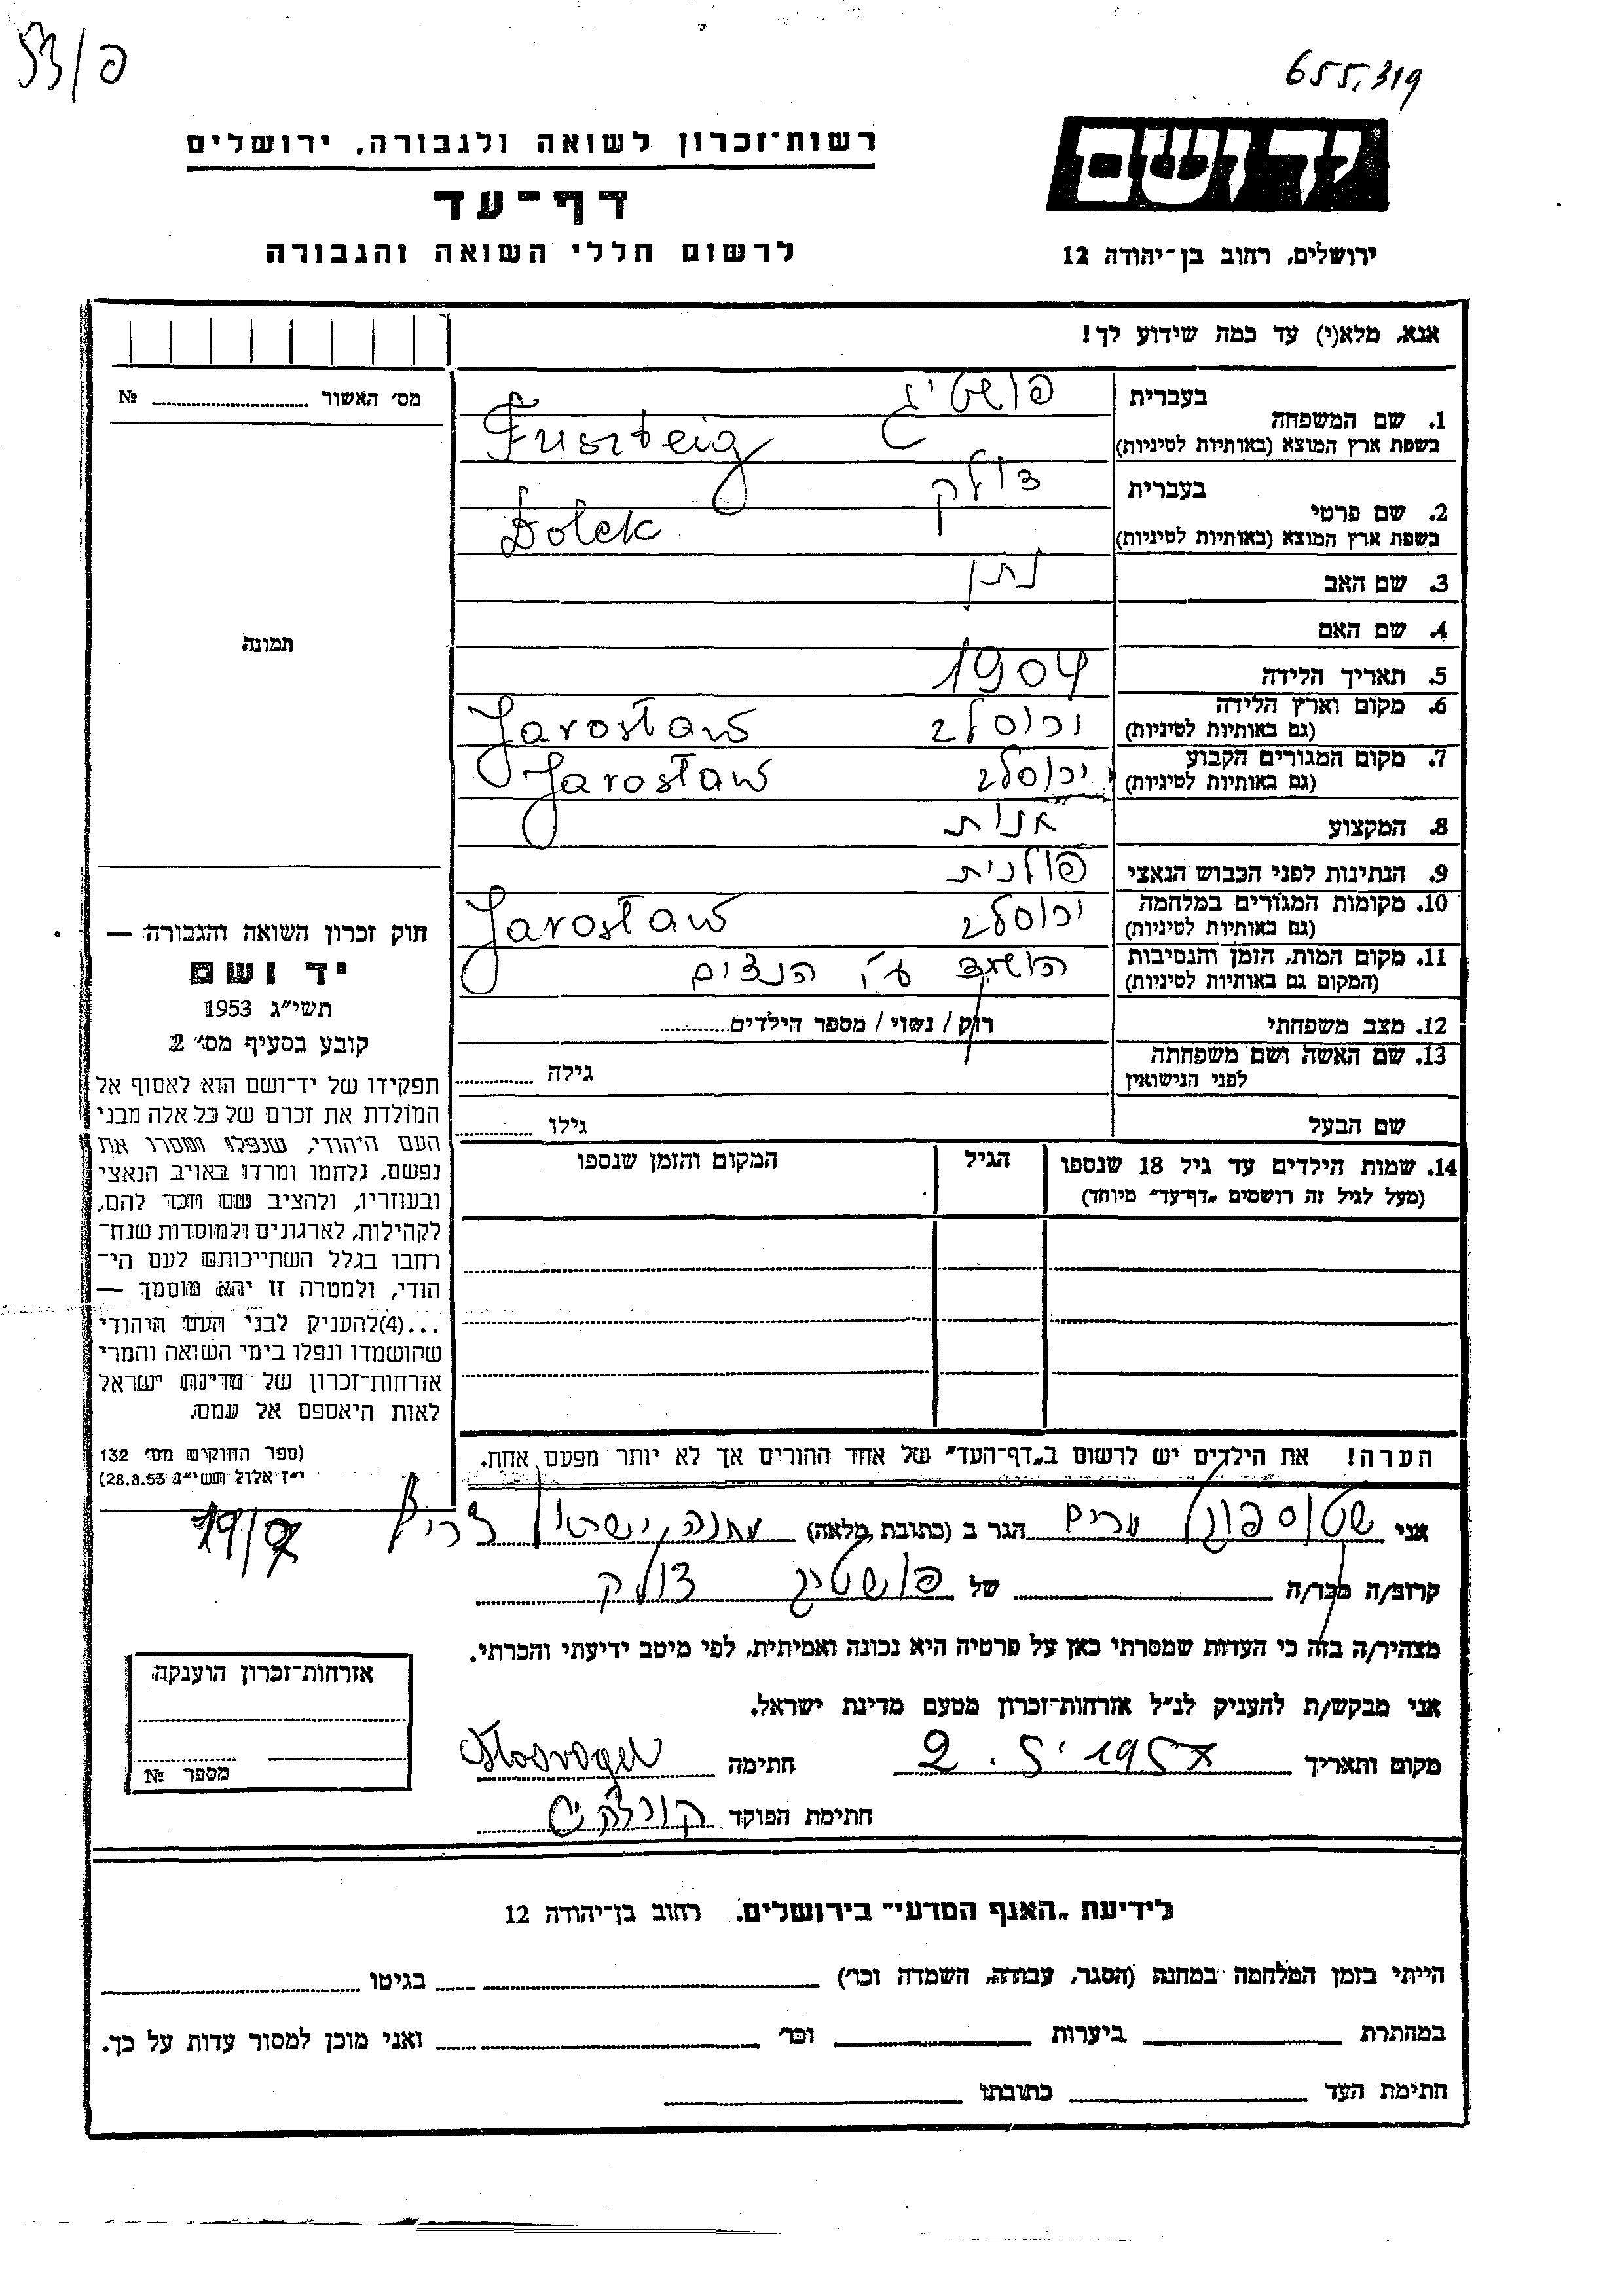 53/פ
655,319
רשות־זכרון לשואה ולגבורה, ירושלים
יד ושם
דף־עד
לרשום חללי השואה והגבורה
ירושלים, רחוב בן־יהודה 12
אנא, מלא(י) עד כמה שידוע לך!
מס׳ האשור № 
תמונה
1. שם המשפחה בעברית פושטיג
בשפת ארץ המוצא (באותיות לטיניות) Fuszteig
2. שם פרטי בעברית דולק
בשפת ארץ המוצא (באותיות לטיניות) Dolek
3. שם האב נתן
4. שם האם
5. תאריך הלידה 1904
6. מקום וארץ הלידה ירוסלב Jarosław
(גם באותיות לטיניות)
7. מקום המגורים הקבוע ירוסלב Jarosław
(גם באותיות לטיניות)
8. המקצוע
9. הנתינות לפני הכבוש הנאצי פולנית
10. מקומות המגורים במלחמה ירוסלב Jarosław
(גם באותיות לטיניות)
11. מקום המות, הזמן והנסיבות הושמד ע״י הנצים
(המקום גם באותיות לטיניות)
12. מצב משפחתי רוק / נשוי / מספר הילדים
13. שם האשה ושם משפחתה גילה
לפני הנישואין
שם הבעל גילו
14. שמות הילדים עד גיל 18 שנספו הגיל המקום והזמן שנספו
(מעל לגיל זה רושמים „דף־עד״ מיוחד)
חוק זכרון השואה והגבורה —
יד ושם
תשי״ג 1953
קובע בסעיף מס׳ 2
תפקידו של יד־ושם הוא לאסוף אל
המולדת את זכרם של כל אלה מבני
העם היהודי, שנפלו ומסרו את
נפשם, נלחמו ומרדו באויב הנאצי
ובעוזריו, ולהציב שם וזכר להם,
לקהילות, לארגונים ולמוסדות שנח־
רחבו בגלל השתייכותם לעם הי־
הודי, ולמטרה זו יהא מוסמך —
...(4) להעניק לבני העם היהודי
שהושמדו ונפלו בימי השואה והמרי
אזרחות־זכרון של מדינת ישראל
לאות היאספם אל עמם.
(ספר החוקים מס׳ 132
י״ז אלול תשי״ג 28.8.53)
הערה! את הילדים יש לרשום ב„דף־העד״ של אחד ההורים אך לא יותר מפעם אחת.
אני מרים הגר ב (כתובת מלאה) מחנה ישראל צריף 19/7
קרוב/ה מכר/ה של פושטיג דולק
מצהיר/ה בזה כי העדות שמסרתי כאן על פרטיה היא נכונה ואמיתית, לפי מיטב ידיעתי והכרתי.
אני מבקש/ת להעניק לנ״ל אזרחות־זכרון מטעם מדינת ישראל.
מקום ותאריך 2.5.1957 חתימה
חתימת הפוקד
אזרחות־זכרון הוענקה
מספר №
לידיעת „האגף המדעי״ בירושלים. רחוב בן־יהודה 12
הייתי בזמן המלחמה במחנה (הסגר, עבודה, השמדה וכר׳) בגיטו
במחתרת ביערות וכר׳ ואני מוכן למסור עדות על כך.
חתימת העד כתובתו